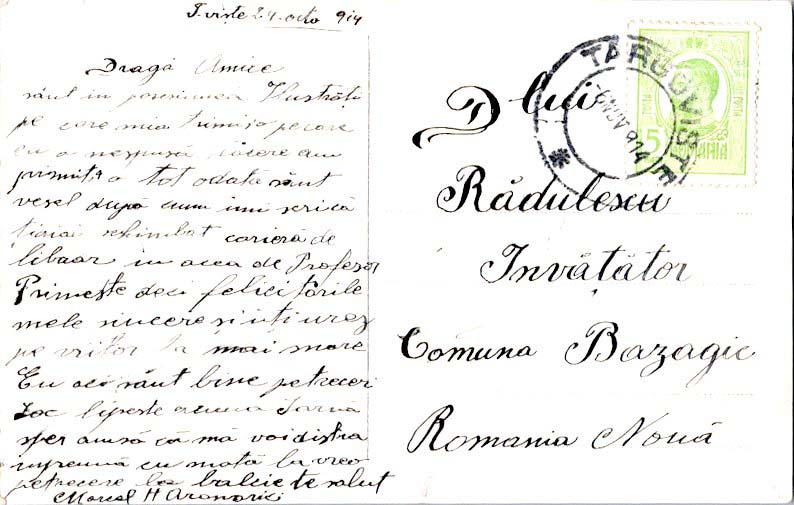 T.viște 24 octo 914
Dragă Amice
sânt in posesiunea Ilustrăti
pe care mia trimis o pe care
cu o nespusă plăcere am
primit o tot odata sânt
vesel după cum imi scri că
ti-ai schimbat carieră de
in acea de Profesor
Primește deci felicitările
mele sincere și iți urez
pe viitor la mai mare
Eu aci sânt bine petreceri
loc lipsește acuma Iarnă
sper insă că mă voi distra
impreună cu mată la vreo
petrecere te salut
Marcel H Aronovici
D lui
Rădulescu
Invățător
Comuna Bazagic
Romania Nouă
TARGOVISTE
6 NOV 914
POSTA
5
ROMANIA